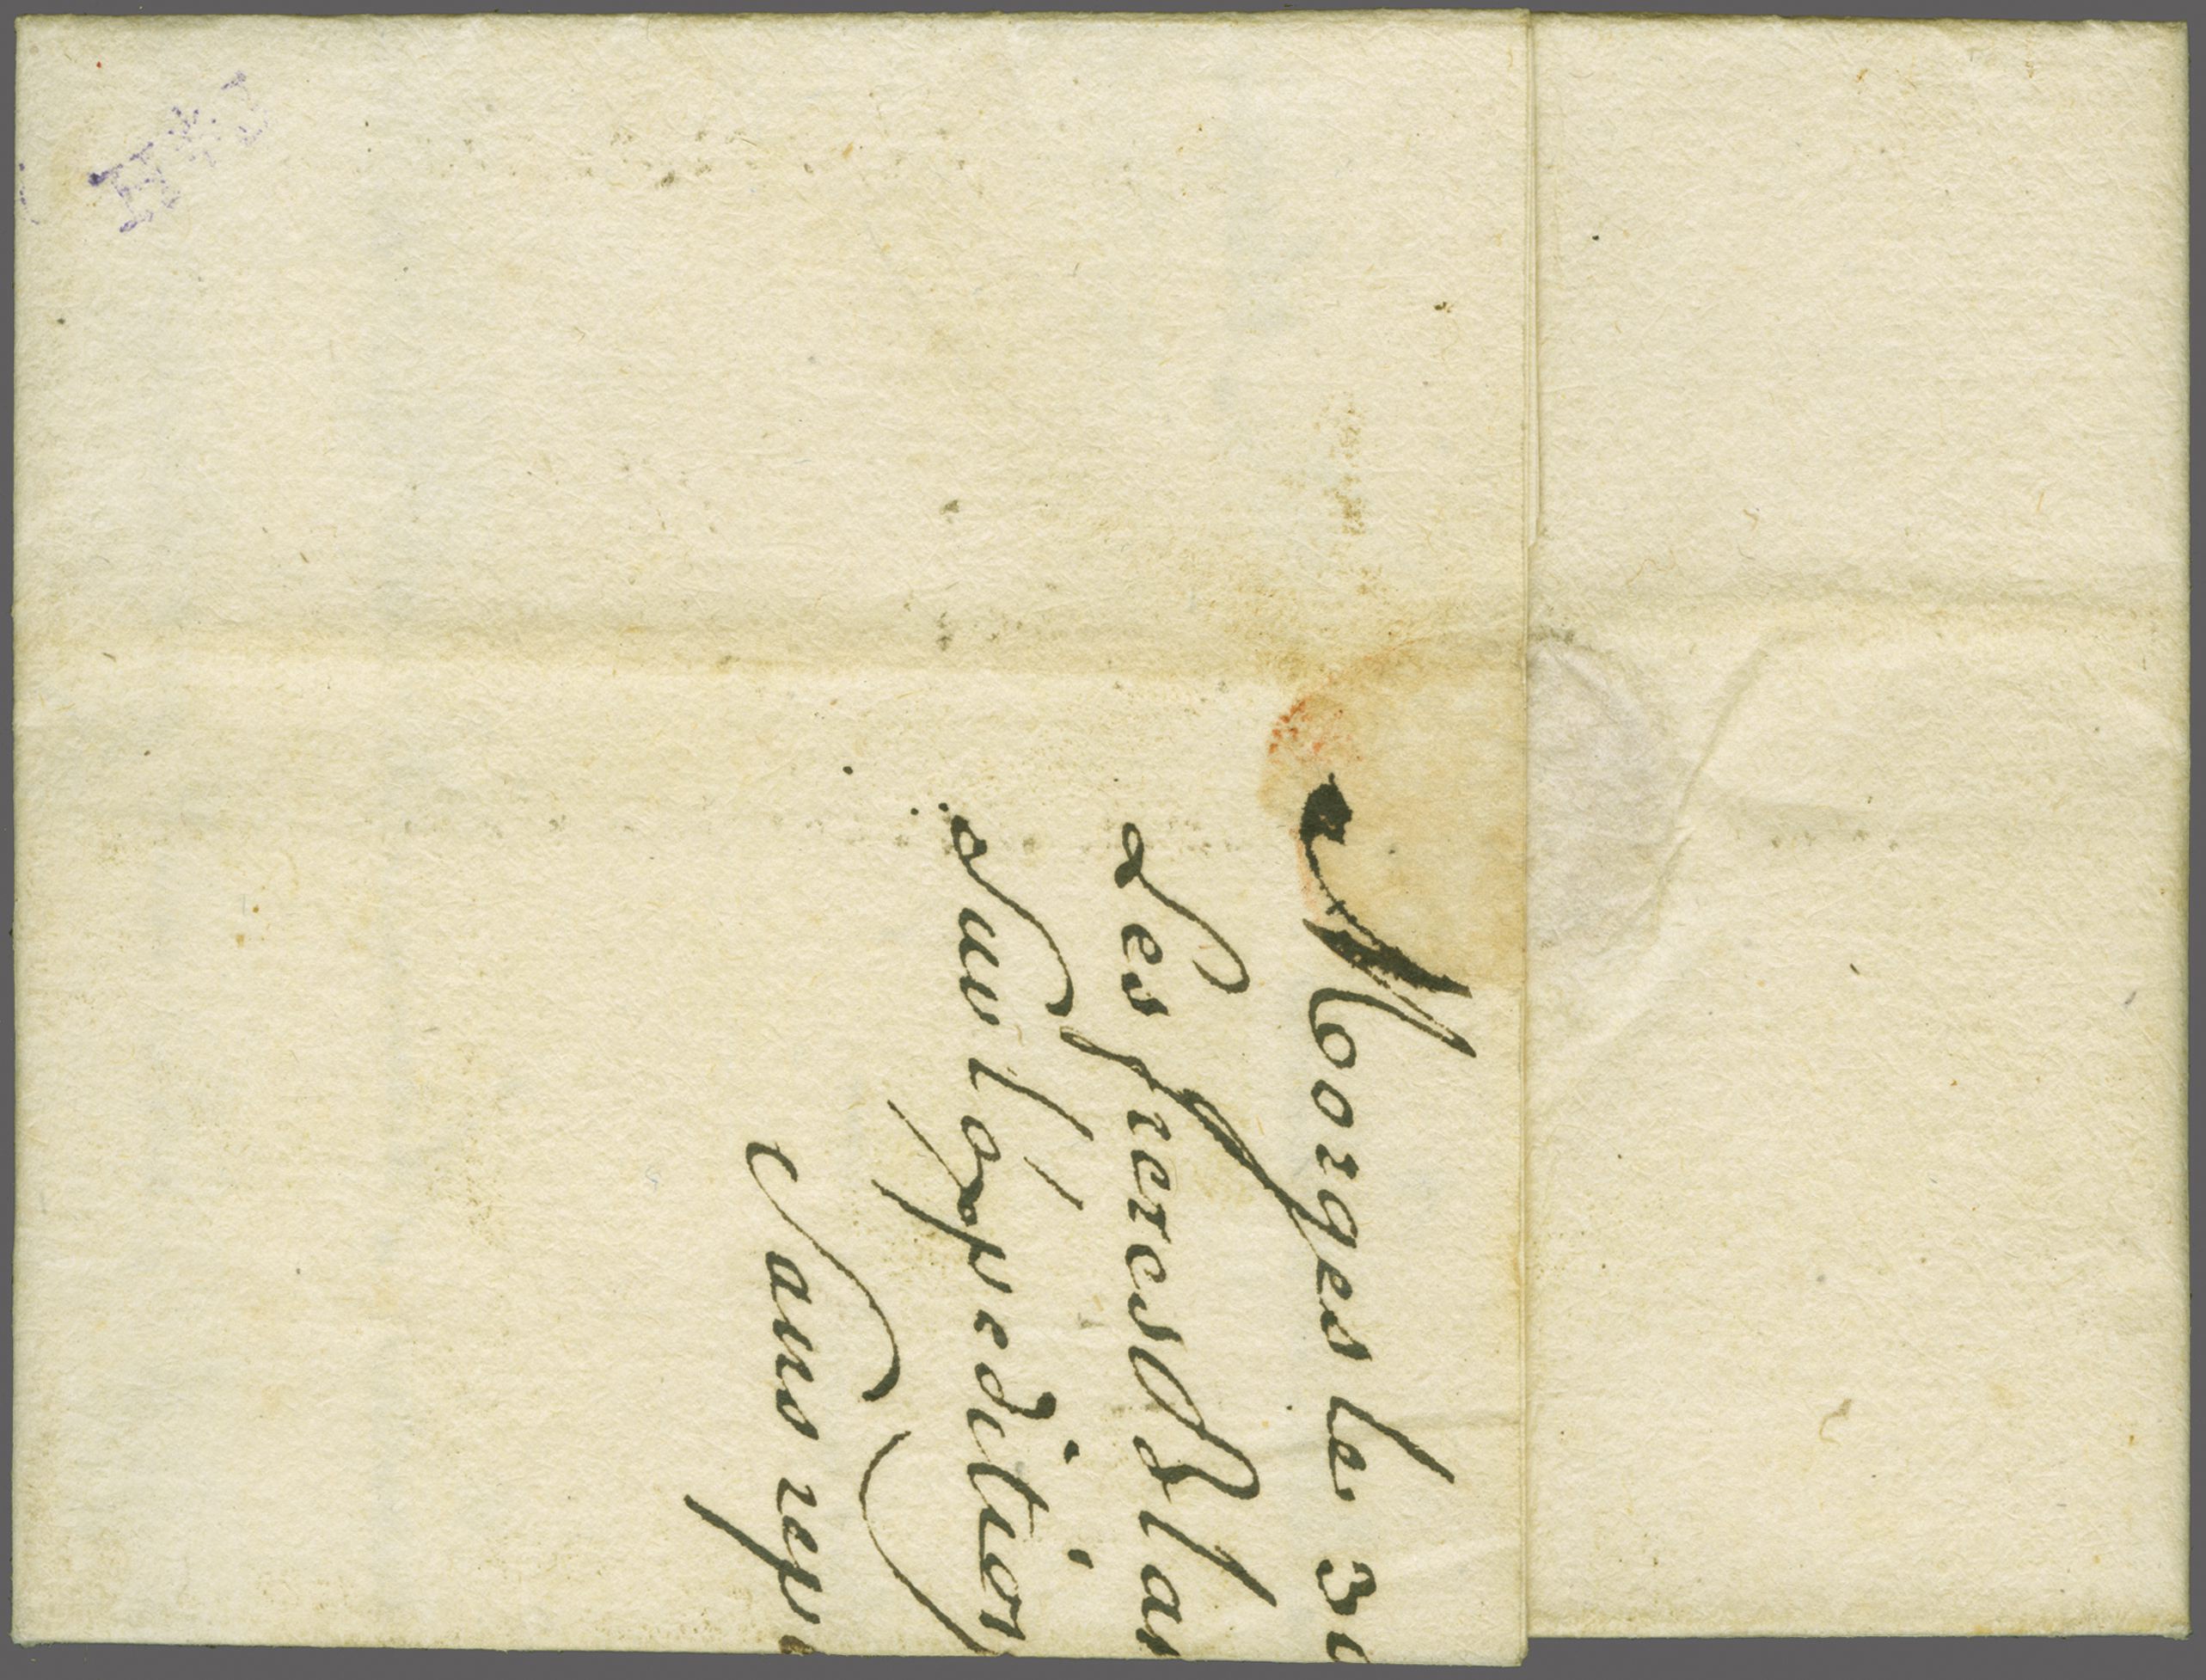 Morges le 3
Les freres Blan
Sur l'expedition
Sans rep